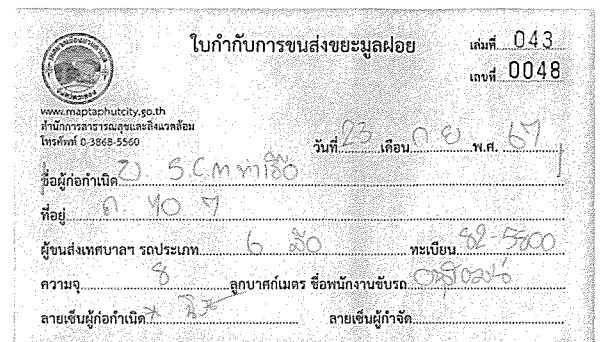 ใบกำกับการขนส่งขยะมูลฝอย เล่มที่ 043
เลขที่ 0048
www.maptaphutcity.go.th
สำนักการสาธารณสุขและสิ่งแวดล้อม
โทรศัพท์ 0-3868-5560
วันที่ 23 เดือน ก ย พ.ศ. 67
ชื่อผู้ก่อกำเนิด บ S.C.M ท่าเรือ
ที่อยู่ ถ
ผู้ขนส่งเทศบาลฯ รถประเภท 6 ล้อ ทะเบียน 82-5800
ความจุ 8 ลูกบาศก์เมตร ชื่อพนักงานขับรถ
ลายเซ็นผู้ก่อกำเนิด ลายเซ็นผู้กำจัด